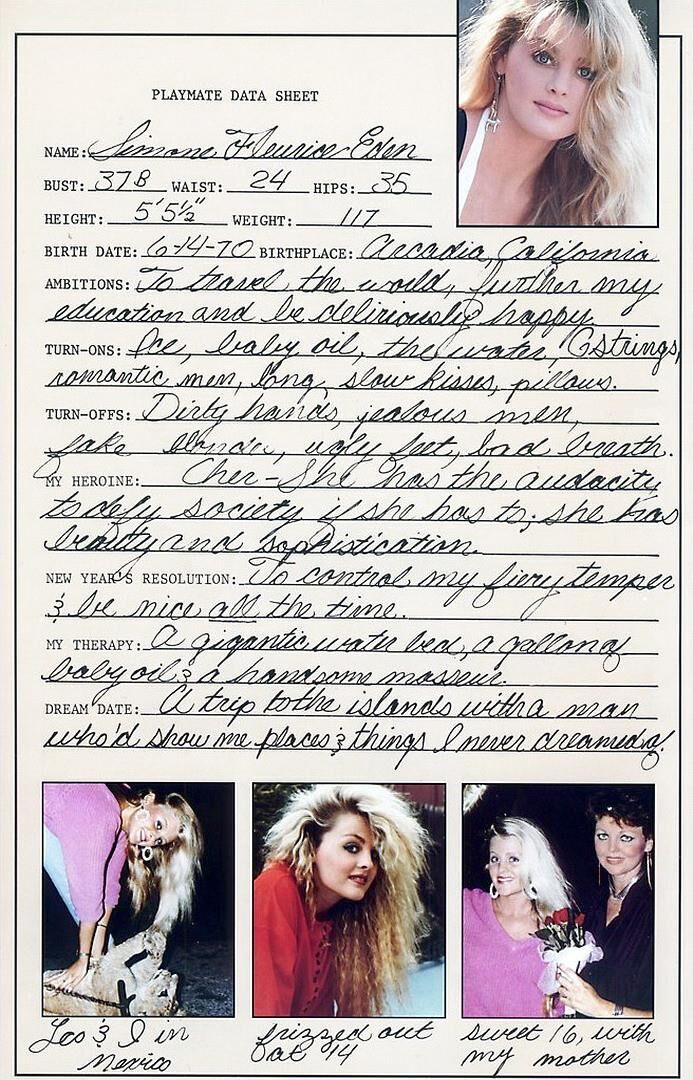 PLAYMATE DATA SHEET
NAME: Simone Fleurice Eden
BUST: 37B WAIST: 24 HIPS: 35
HEIGHT: 5'5½" WEIGHT: 117
BIRTH DATE: 6-14-70 BIRTHPLACE: Arcadia, California
AMBITIONS: To travel the world, further my
education and be deliriously happy.
TURN-ONS: Ice, baby oil, the water, G Strings,
romantic men, long, slow kisses, pillows.
TURN-OFFS: Dirty hands, jealous men,
fake blondes, ugly feet, bad breath.
MY HEROINE: Cher-She has the audacity
to defy society if she has to; she has
beauty and sophistication.
NEW YEAR'S RESOLUTION: To control my fiery temper
& be nice all the time.
MY THERAPY: A gigantic water bed, a gallon of
baby oil & a handsome masseur.
DREAM DATE: A trip to the islands with a man
who'd show me places & things I never dreamed of.
Leo & I in
Mexico
frizzed out
at 14
sweet 16, with
my mother